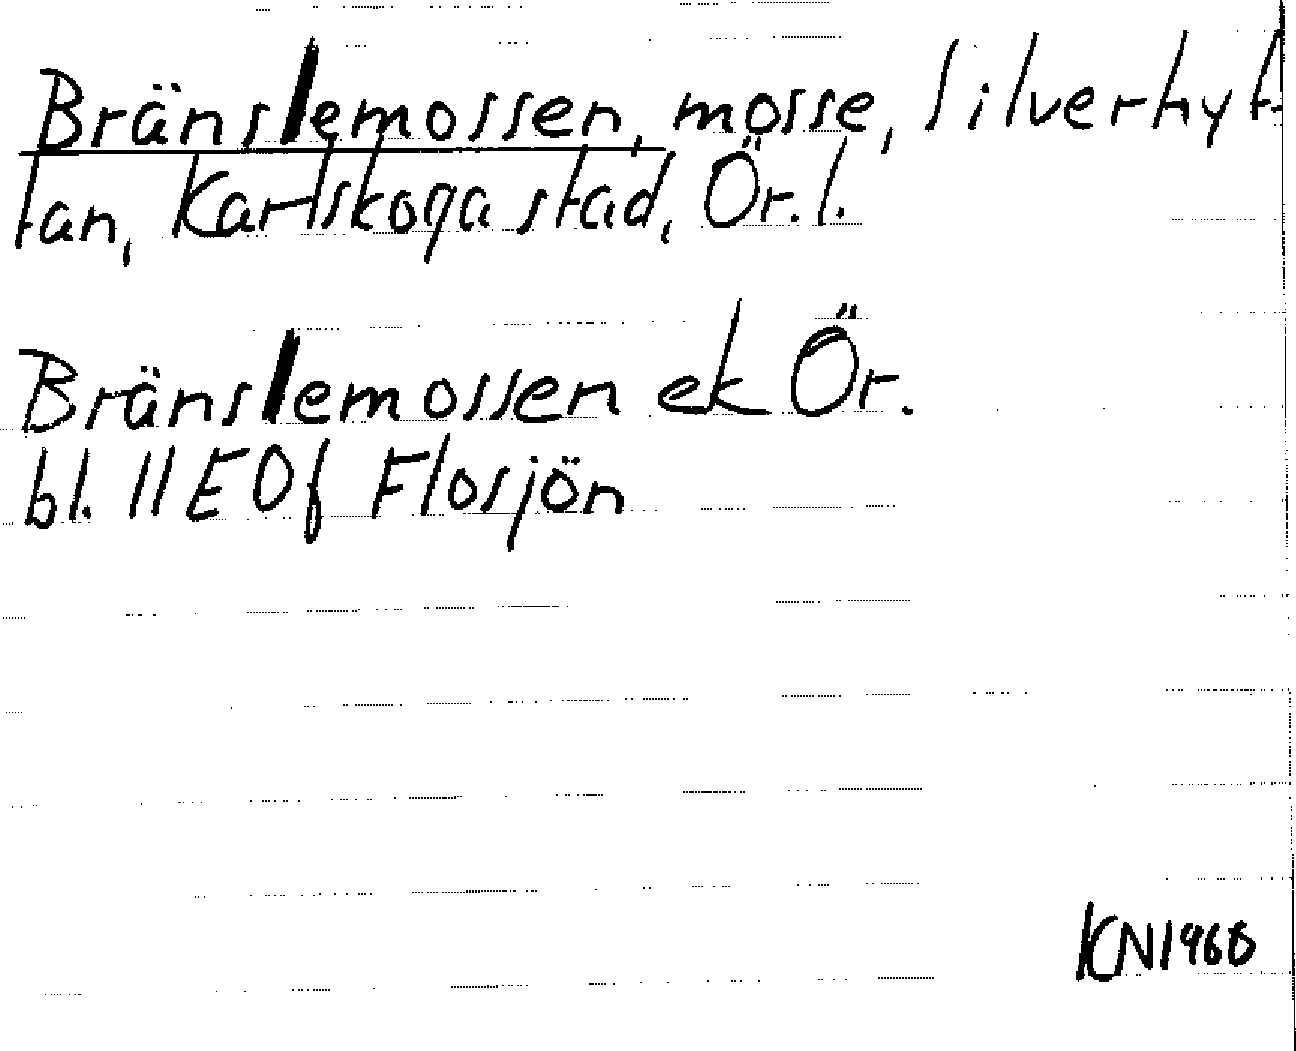 Bränslemossen, mosse, Silverhyt-
tan, Karlskoga stad, Ör. l.
Bränslemossen ek Ör.
bl. 11E0f Flosjön
KN1968